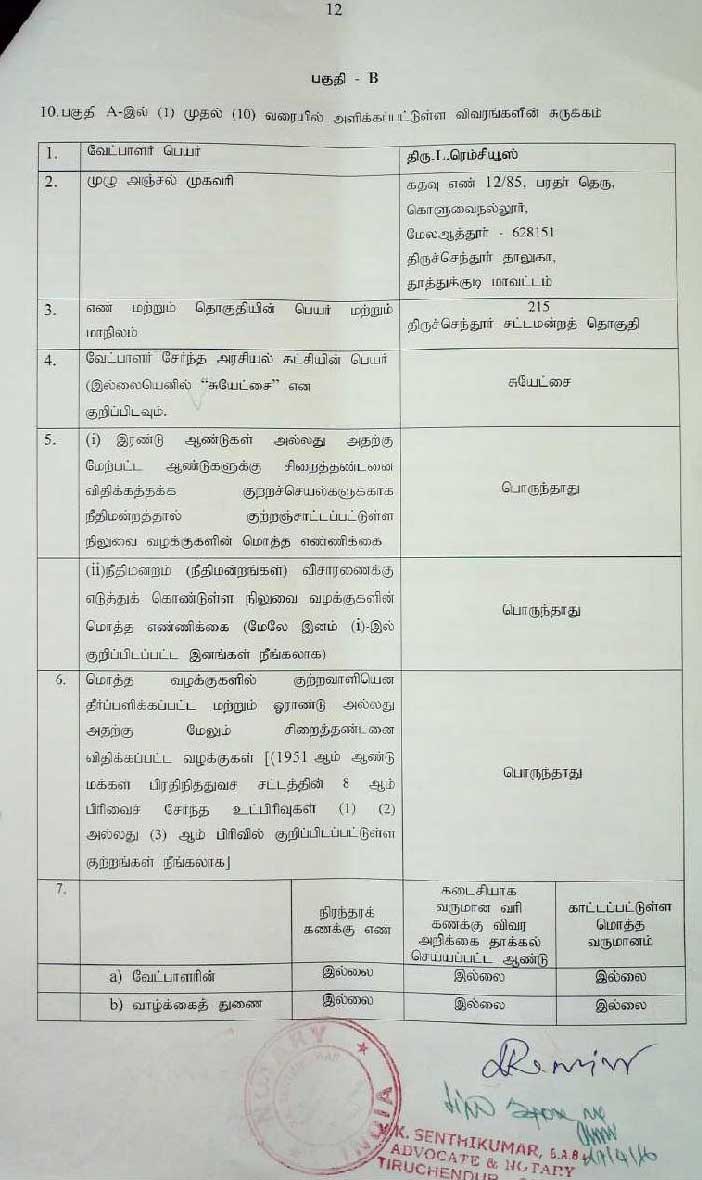 12
பகுதி - B
10.பகுதி A-இல் (1) முதல் (10) வரையில் அளிக்கப்பட்டுள்ள விவரங்களின் சுருக்கம்
1. வேட்பாளர் பெயர் திரு.L.ரெம்சியூஸ்
2. முழு அஞ்சல் முகவரி கதவு எண் 12/85, பரதர் தெரு,
கொளுவைநல்லூர்,
மேலஆத்தூர் - 628151
திருச்செந்தூர் தாலுகா,
தூத்துக்குடி மாவட்டம்
3. எண மற்றும் தொகுதியின் பெயர் மற்றும்
மாநிலம்
215
திருச்செந்தூர் சட்டமன்றத் தொகுதி
4. வேட்பாளர் சேர்ந்த அரசியல் கட்சியின் பெயர்
(இல்லையெனில் “சுயேட்சை” என
குறிப்பிடவும்.
சுயேட்சை
5. (i) இரண்டு ஆண்டுகள் அல்லது அதற்கு
மேற்பட்ட ஆண்டுகளுக்கு சிறைத்தண்டனை
விதிக்கத்தக்க குற்றச்செயல்களுக்காக
நீதிமன்றத்தால் குற்றஞ்சாட்டப்பட்டுள்ள
நிலுவை வழக்குகளின் மொத்த எண்ணிக்கை
பொருந்தாது
(ii)நீதிமன்றம் (நீதிமன்றங்கள்) விசாரணைக்கு
எடுத்துக் கொண்டுள்ள நிலுவை வழக்குகளின்
மொத்த எண்ணிக்கை (மேலே இனம் (i)-இல்
குறிப்பிடப்பட்ட இனங்கள் நீங்கலாக)
பொருந்தாது
6. மொத்த வழக்குகளில் குற்றவாளியென
தீர்ப்பளிக்கப்பட்ட மற்றும் ஓராண்டு அல்லது
அதற்கு மேலும் சிறைத்தண்டனை
விதிக்கப்பட்ட வழக்குகள் [(1951 ஆம் ஆண்டு
மக்கள் பிரதிநிதித்துவச சட்டத்தின் 8 ஆம்
பிரிவைச் சோந்த உட்பிரிவுகள் (1) (2)
அல்லது (3) ஆம் பிரிவில் குறிப்பிடப்பட்டுள்ள
குற்றங்கள் நீங்கலாக]
பொருந்தாது
7.
நிரந்தரக்
கணக்கு எண்
கடைசியாக
வருமான வரி
கணக்கு விவர
அறிக்கை தாக்கல்
செய்யப்பட்ட ஆண்டு
காட்டப்பட்டுள்ள
மொத்த
வருமானம்
a) வேட்பாளரின் இல்லை இல்லை இல்லை
b) வாழ்க்கைத் துணை இல்லை இல்லை இல்லை
NOTARY
INDIA
K. SENTHIKUMAR, B.A.B.L
ADVOCATE & NOTARY
TIRUCHENDUR